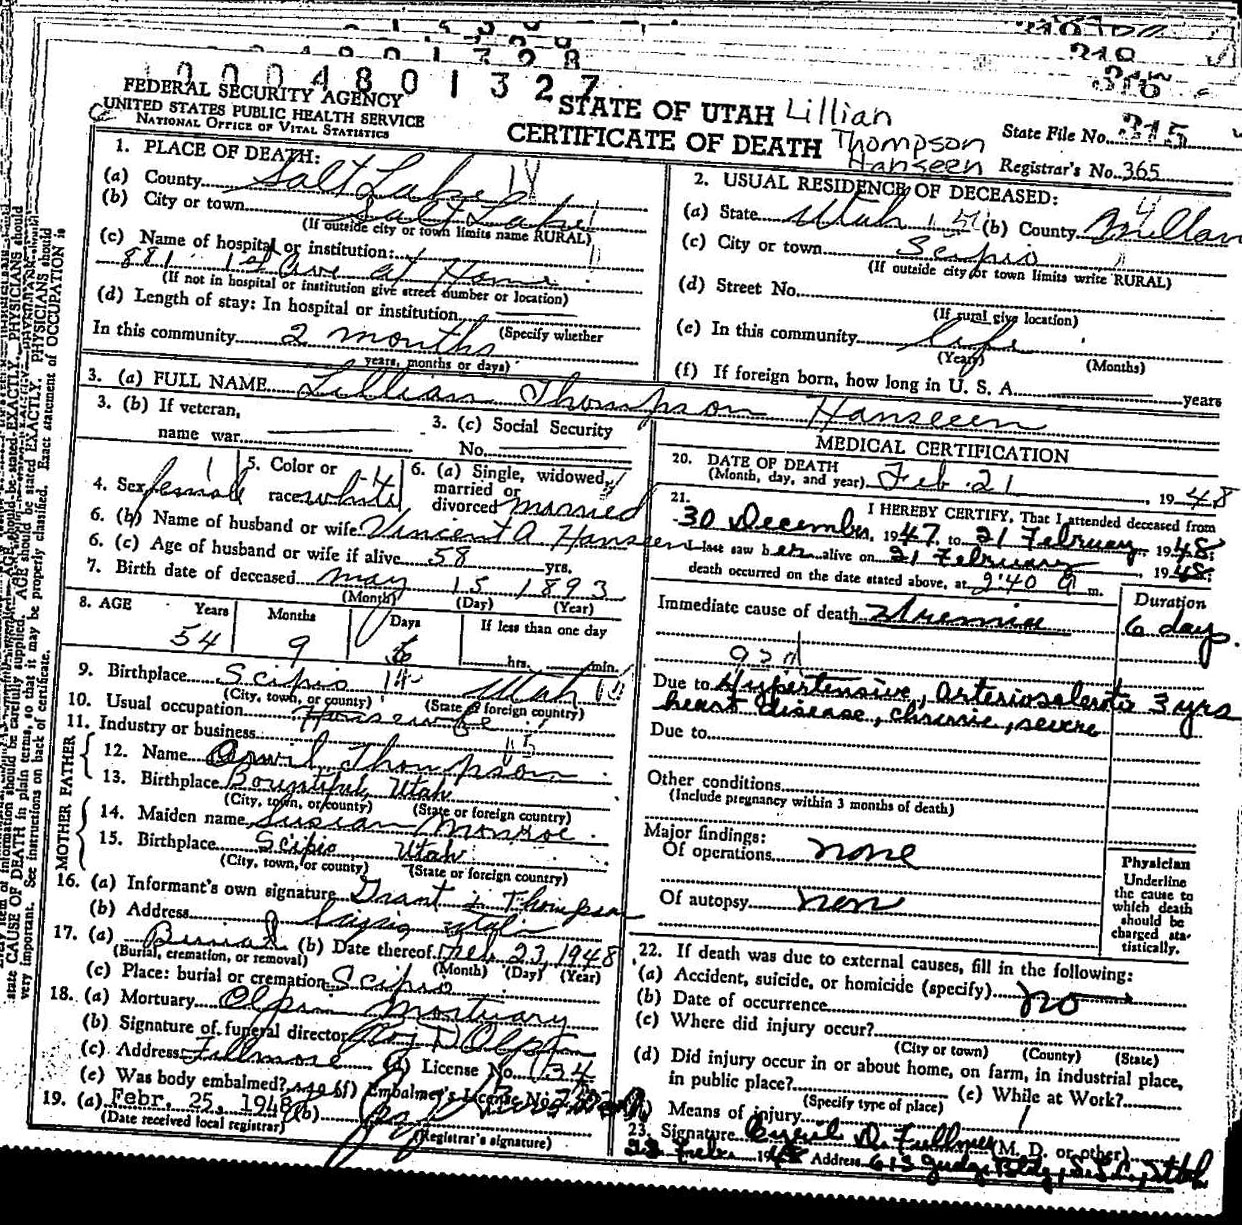 0004801327
FEDERAL SECURITY AGENCY
UNITED STATES PUBLIC HEALTH SERVICE
NATIONAL OFFICE OF VITAL STATISTICS
STATE OF UTAH Lillian
CERTIFICATE OF DEATH Thompson
Hanseen
State File No. 315
Registrar's No. 365
1. PLACE OF DEATH:
(a) County Salt Lake
(b) City or town Salt Lake
(If outside city or town limits name RURAL)
(c) Name of hospital or institution:
881 1st Ave at Home
(If not in hospital or institution give street number or location)
(d) Length of stay: In hospital or institution
(Specify whether
In this community 2 months
years, months or days)
2. USUAL RESIDENCE OF DECEASED:
(a) State Utah (b) County Millard
(c) City or town Scipio
(If outside city or town limits write RURAL)
(d) Street No.
(If rural give location)
(e) In this community life
(Years) (Months)
(f) If foreign born, how long in U. S. A. years
3. (a) FULL NAME Lillian Thompson Hanseen
3. (b) If veteran,
name war
3. (c) Social Security
No.
4. Sex female
5. Color or
race white
6. (a) Single, widowed,
married or
divorced married
6. (b) Name of husband or wife Vincent A Hanseen
6. (c) Age of husband or wife if alive 58 yrs.
7. Birth date of deceased May 15 1893
(Month) (Day) (Year)
8. AGE Years Months Days If less than one day
54 9 6 hrs. min.
9. Birthplace Scipio Utah
(City, town, or county) (State or foreign country)
10. Usual occupation Housewife
11. Industry or business
FATHER
12. Name Orwil Thompson
13. Birthplace Bountiful, Utah
(City, town, or county) (State or foreign country)
MOTHER
14. Maiden name Susian Monroe
15. Birthplace Scipio Utah
(City, town, or county) (State or foreign country)
16. (a) Informant's own signature Grant Thompson
(b) Address Utah
17. (a) Burial (b) Date thereof Feb. 23, 1948
(Burial, cremation, or removal) (Month) (Day) (Year)
(c) Place: burial or cremation Scipio
18. (a) Mortuary Olpin Mortuary
(b) Signature of funeral director Roy D Olpin
(c) Address Fillmore (d) License No. 134
(e) Was body embalmed? yes (f) Embalmer's License No.
19. (a) Febr. 25, 1948 (b)
(Date received local registrar) (Registrar's signature)
MEDICAL CERTIFICATION
20. DATE OF DEATH
(Month, day, and year) Feb. 21, 1948
21. I HEREBY CERTIFY, That I attended deceased from
30 December, 1947, to 21 February, 1948;
I last saw her alive on 21 February 1948;
death occurred on the date stated above, at 2:40 a m.
Duration
Immediate cause of death Uremia 6 days.
Due to Hypertensive, arteriosclerotic 3 yrs
heart disease, chronic, severe
Due to
Other conditions
(Include pregnancy within 3 months of death)
Major findings:
Of operations none
Of autopsy none
Physician
Underline
the cause to
which death
should be
charged sta-
tistically.
22. If death was due to external causes, fill in the following:
(a) Accident, suicide, or homicide (specify) no
(b) Date of occurrence
(c) Where did injury occur?
(City or town) (County) (State)
(d) Did injury occur in or about home, on farm, in industrial place,
in public place?
(Specify type of place) (e) While at Work?
Means of injury
23. Signature Cyril D. Fullmer (M. D. or other)
23 Febr. 1948 Address 613 Judge Bldg, S.L.C., Utah